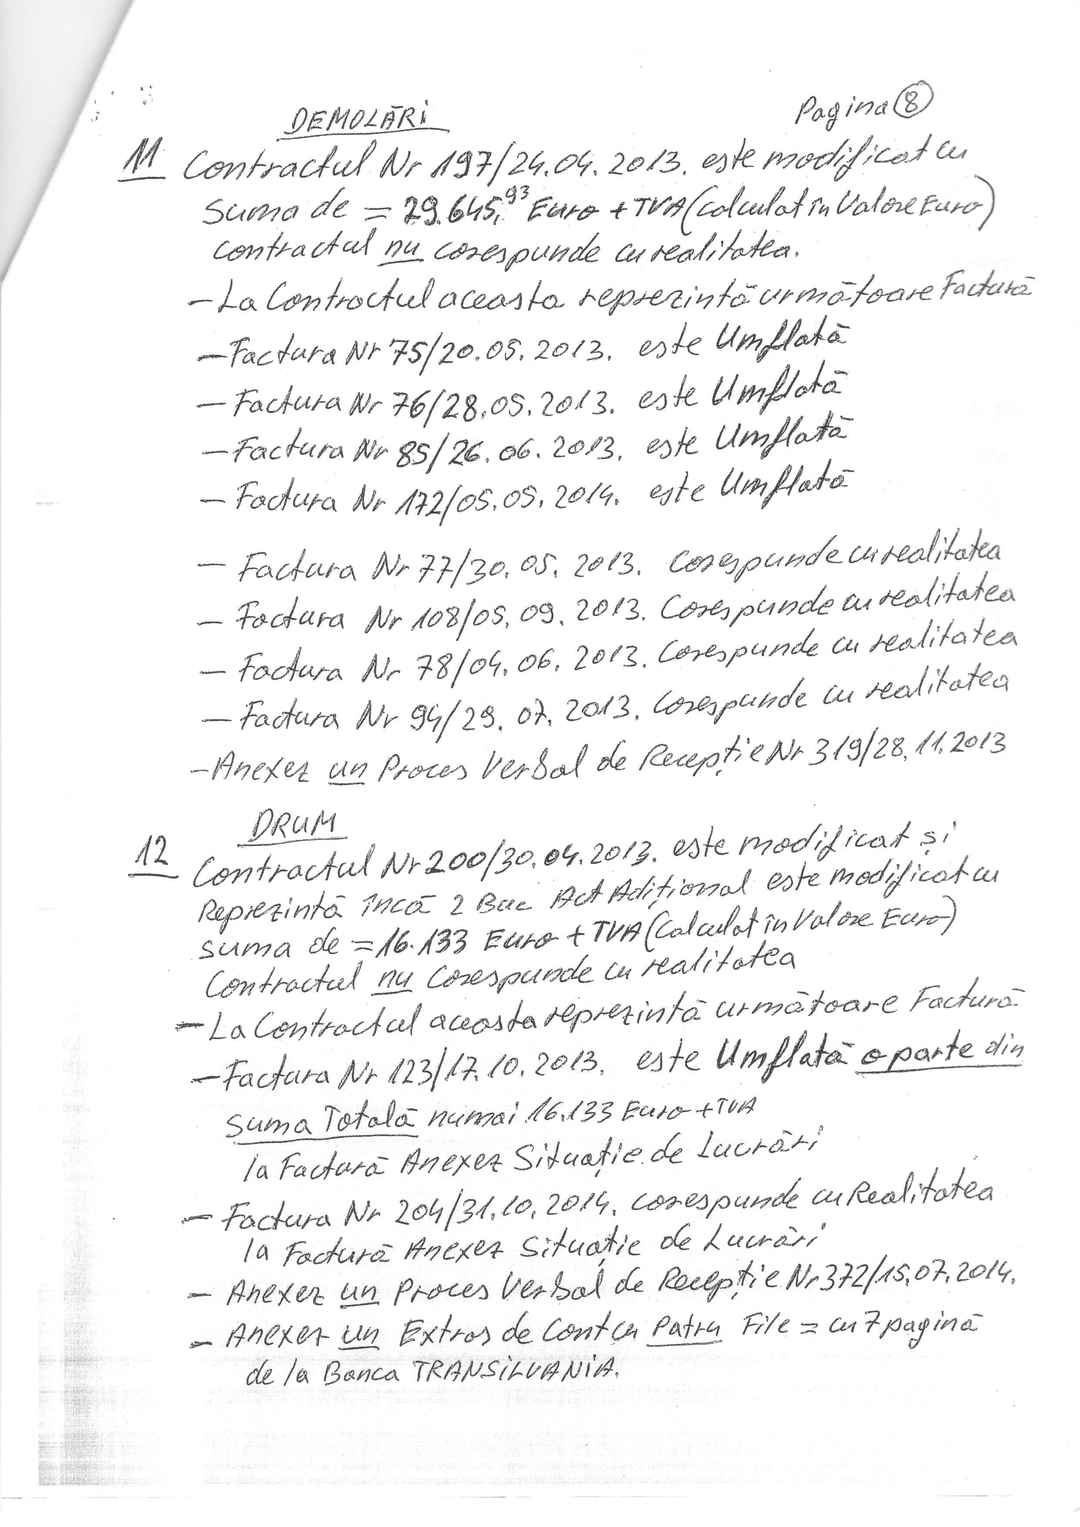 DEMOLĂRI
Pagina 8
11 Contractul Nr 197/24.04.2013. este modificat cu
Suma de = 29.645,93 Euro + TVA (Calculat în Valore Euro)
contractul nu corespunde cu realitatea.
- La Contractul aceasta reprezintă următoare Factură
- Factura Nr 75/20.05.2013. este Umflată
- Factura Nr 76/28.05.2013. este Umflată
- Factura Nr 85/26.06.2013. este Umflată
- Factura Nr 172/05.05.2014. este Umflată
- Factura Nr 77/30.05.2013. Corespunde cu realitatea
- Factura Nr 108/05.09.2013. Corespunde cu realitatea
- Factura Nr 78/04.06.2013. Corespunde cu realitatea
- Factura Nr 94/29.07.2013. Corespunde cu realitatea
- Anexez un Proces Verbal de Recepție Nr 319/28.11.2013
DRUM
12 Contractul Nr 200/30.04.2013. este modificat și
Reprezintă încă 2 Buc Act Adițional este modificat cu
suma de = 16.133 Euro + TVA (Calculat în Valore Euro)
Contractul nu Corespunde cu realitatea
- La Contractul aceasta reprezintă următoare Factură
- Factura Nr 123/17.10.2013. este Umflată o parte din
Suma Totală numai 16.133 Euro + TVA
la Factură Anexez Situație de Lucrări
- Factura Nr 204/31.10.2014. corespunde cu Realitatea
la Factură Anexez Situație de Lucrări
- Anexez un Proces Verbal de Recepție Nr 372/15.07.2014.
- Anexez un Extras de Cont cu Patru File = cu 7 pagină
de la Banca TRANSILVANIA.